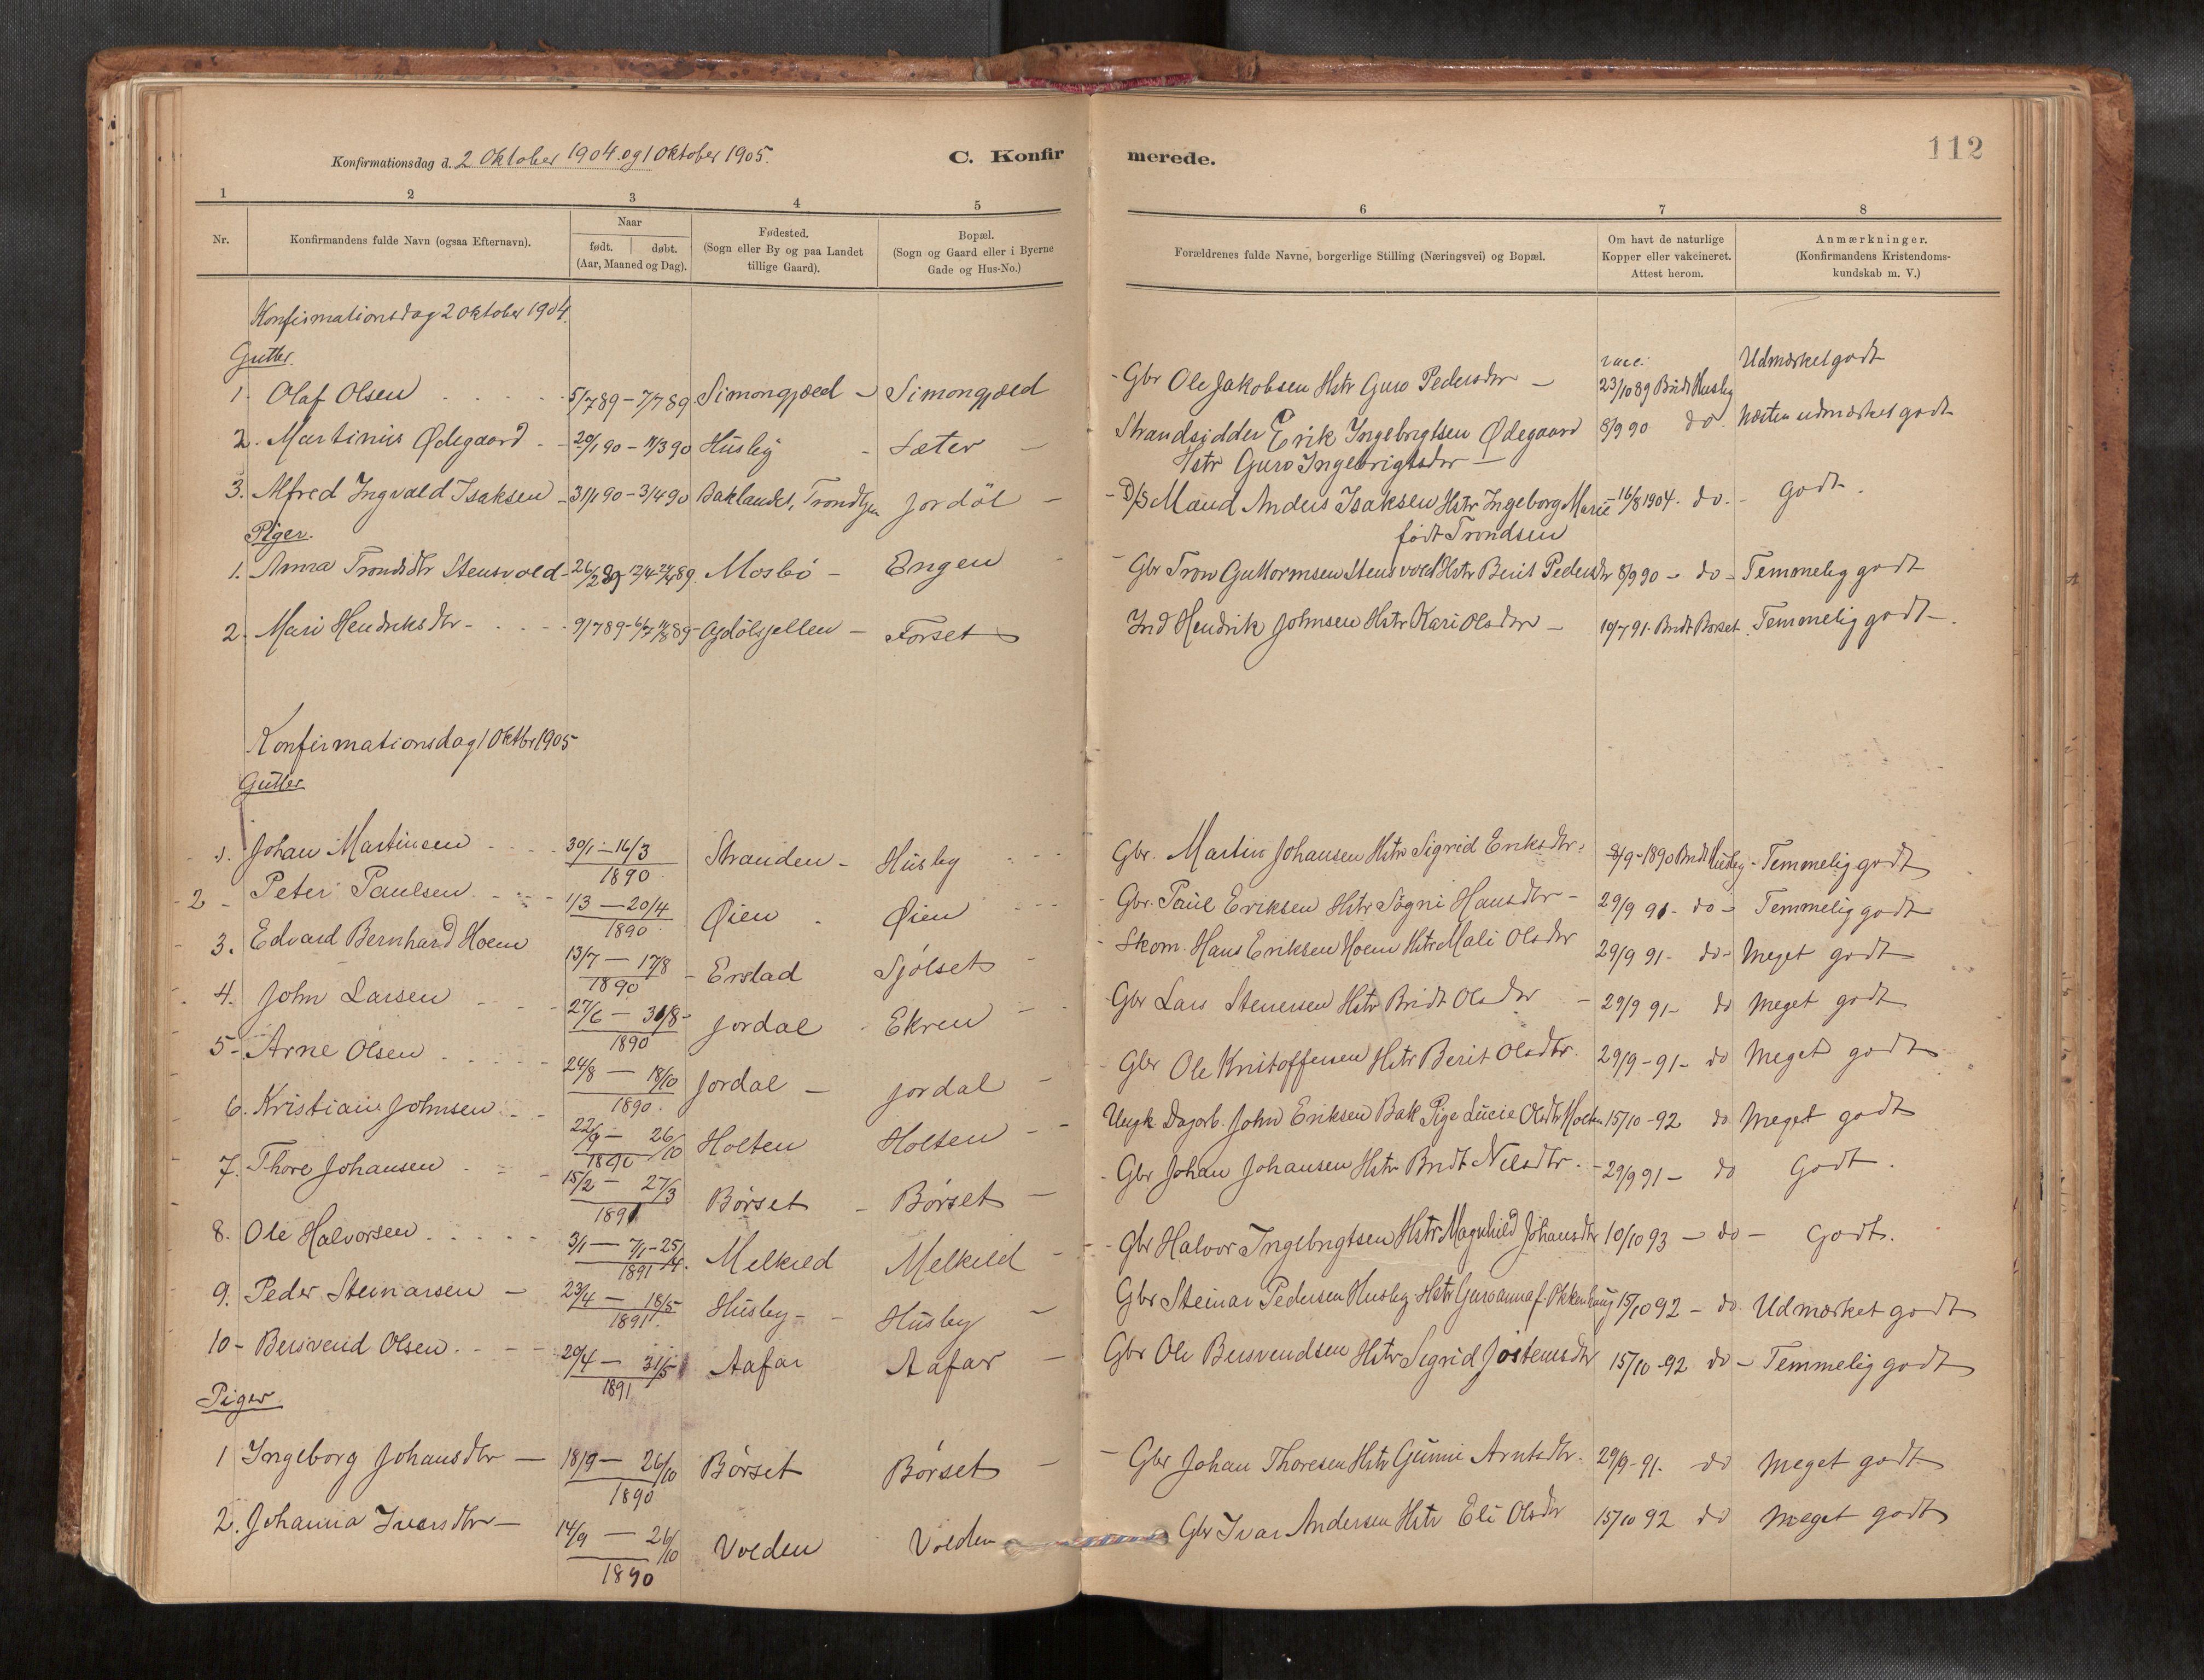 Konfirmationsdag d. 2 Oktober 1904 og 1 Oktober 1905.
C. Konfir merede.
112
1 2 3 4 5 6 7 8
Nr.
Konfirmandens fulde Navn (ogsaa Efternavn).
Naar
født. døbt.
(Aar, Maaned og Dag).
Fødested.
(Sogn eller By og paa Landet
tillige Gaard).
Bopæl.
(Sogn og Gaard eller i Byerne
Gade og Hus-No.)
Forældrenes fulde Navne, borgerlige Stilling (Næringsvei) og Bopæl.
Om havt de naturlige
Kopper eller vakcineret.
Attest herom.
Anmærkninger.
(Konfirmandens Kristendoms-
kundskab m. V.)
Konfirmationsdag 2 Oktober 1904.
Gutter
vacc.
1. Olaf Olsen 5/7 89 - 7/7 89 Simongjæld - Simongjæld - Gbr Ole Jakobsen Hstr Guro Pedersdtr - 23/10 89 Bridt Husby Udmærket godt
2. Martinus Ødegaard - 20/1 90 - 11/3 90 Husby - Sæter - Strandsidder Erik Ingebrigtsen Ødegaard 8/9 90 do. Næsten udmærket godt
Hstr Guro Ingebrigtsdtr -
3. Alfred Ingvald Isaksen - 31/1 90 - 3/4 90 Baklandet, Trondhjem Jordöl - D/S Mand Anders Isaksen Hstr Ingeborg Marie - 16/8 1904 - do. - Godt.
født Trondsen
Piger.
1. Anna Trondsdtr Stensvold - 26/2 89 - 12/4 - 24/4 89. Mosbö - Engen - Gbr Tron Guttormsen Stensvold Hstr Berit Pedersdtr 8/9 90 - do - Temmelig godt
2. Mari Hendriksdtr - 9/7 89 - Forset Ind Hendrik Johnsen Hstr Kari Olsdtr - 10/7 91 - Bridt Børset. Temmelig godt -
Konfirmationsdag 1 Oktbr 1905
Gutter
1. Johan Martinsen 30/1 - 16/3 1890 Stranden - Husby Gbr. Martin Johansen Hstr Sigrid Eriksdtr. 8/9 - 1890 Bridt Husby - Temmelig godt
2 - Peter Paulsen 1/3 - 20/4 1890 Øien - Øien - Gbr. Paul Eriksen Hstr Sögni Hansdtr - 29/9 91 - do - Temmelig godt
3. Edvard Bernhard Hoem 13/7 - 17/8 1890 - Erstad Sjölset - Skom. Hans Eriksen Hoem Hstr Mali Olsdtr 29/9 91 - do - Meget godt
4. John Larsen 27/6 - 31/8 - 1890 Jordal - Ekren - Gbr Lars Stenersen Hstr Bridt Olsdtr - 29/9 91 - do Meget godt
5 - Arne Olsen 24/8 - 18/10 1890. Jordal - Jordal - Gbr Ole Kristoffersen Hstr Berit Olsdtr. 29/9 - 91 - do Meget godt
6. Kristian Johnsen 22/9 - 26/10 1890 Holten Holten - Ungk. Dagarb. John Eriksen Bak Pige Lucie Olsdtr Holten 15/10 - 92 do Meget godt
7. Thore Johansen 15/2 - 27/3 1891 Börset - Börset - Gbr Johan Johansen Hstr Bridt Nilsdtr. - 29/9 91 - do Godt.
8. Ole Halvorsen 3/1 - 7/1 - 25/4. 1891 Melkild Melkild - Gbr Halvor Ingebrigtsen Hstr Magnhild Johansdtr 10/10 93 - do - Godt.
9. Peder Steinarsen - 23/4 - 18/5 1891 Husby - Husby - Gbr Steinar Pedersen Husby Hstr Guroanna f. Okkenhaug 15/10 92 - do Udmærket godt
10 - Bersvend Olsen 20/4 - 31/5 1891 Aafar Aafar - Gbr Ole Bersvendsen Hstr Sigrid Jöstensdtr 15/10 - 92 do - Temmelig godt
Piger
1 Ingeborg Johansdtr - 18/9 - 26/10 1890 Börset Börset - Gbr Johan Thoresen Hstr Gunni Arntsdtr. 29/9 - 91. do Meget godt
2. Johanna Ivarsdtr - 14/9 - 26/10 1890 Volden Volden Gbr Ivar Andersen Hstr Eli Olsdtr 15/10 92 do Meget godt